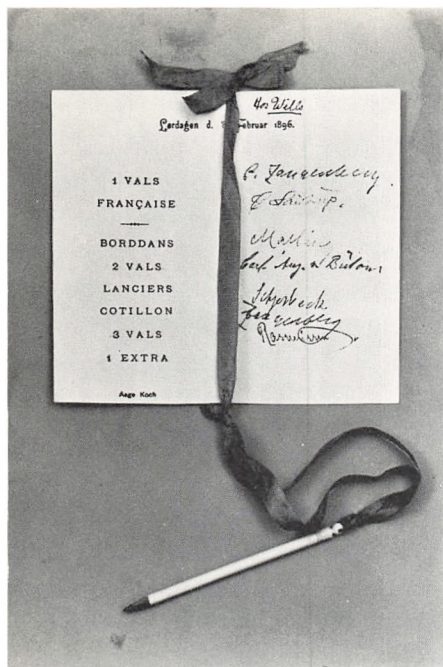 Hos Wille
Lørdagen d. Februar 1896.
1 VALS
FRANÇAISE
BORDDANS
2 VALS
LANCIERS
COTILLON
3 VALS
1 EXTRA
Aage Koch
P. Zangenberg.
Carl Aug. v Bülow
Zangenberg